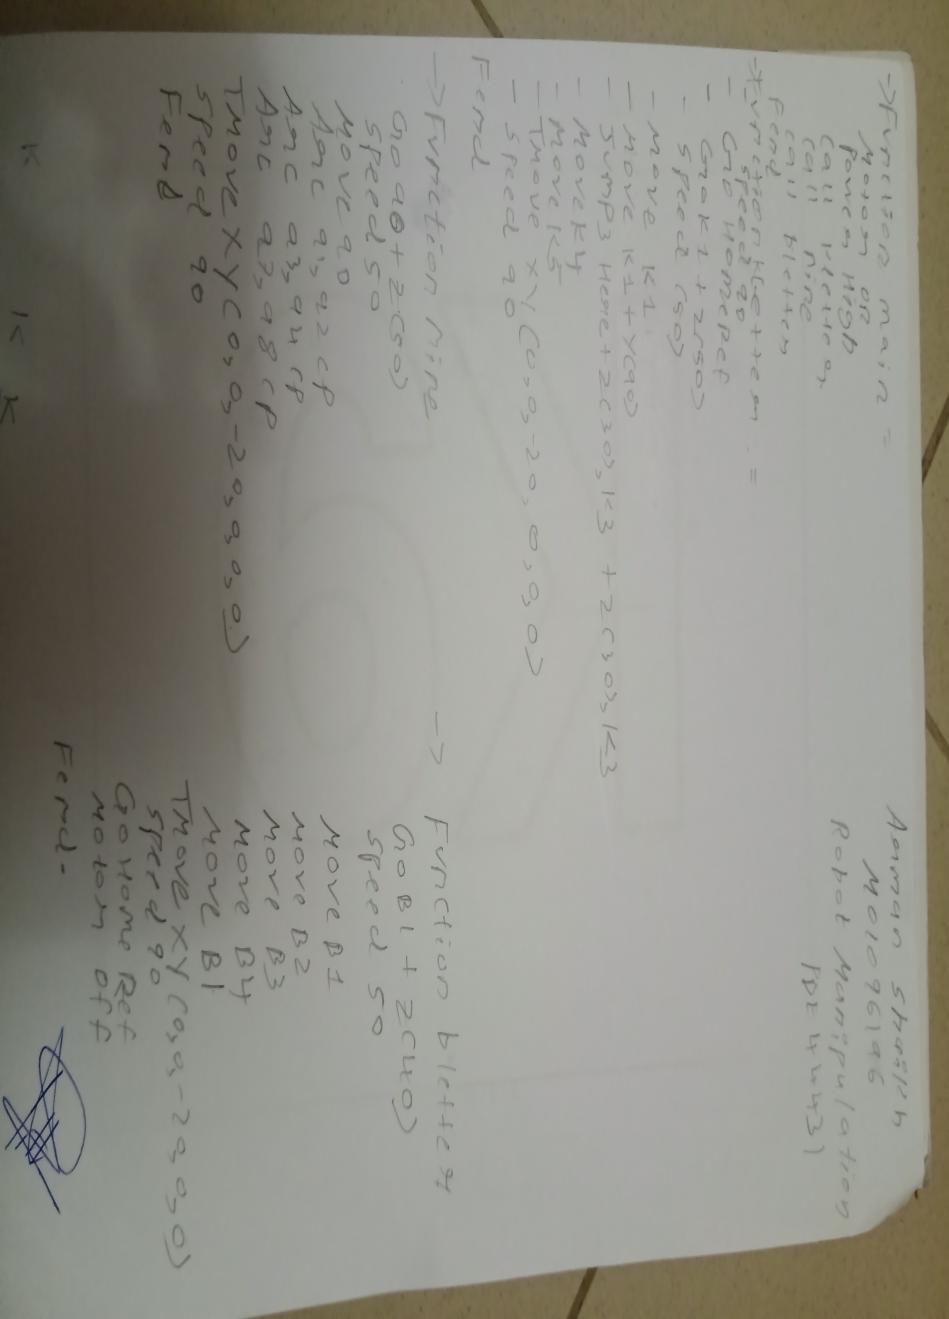 Aaman Shaikh
M01096196
Robot Manipulation
PDE4431
-> Function main =
Motor on
Power High
Call kletter
Call nine
Call bletter
Fend
-> Function kletter =
Speed 90
- Go HomeRef
- Go K1 + Z(50)
- Speed (50)
- Move K1
- Move K1 + Y(90)
- Jump3 Here + Z(30), K3 + Z(30), K3
- Move K4
- Move K5
- TMove XY(0,0,-20,0,0,0)
- Speed 90
Fend
-> Function nine
Go q0 + Z(50)
Speed 50
Move q0
Arc q1, q2 CP
Arc q3, q4 CP
Arc q7, q8 CP
TMove XY(0,0,-20,0,0,0)
Speed 90
Fend
-> Function bletter
Go B1 + Z(40)
Speed 50
Move B1
Move B2
Move B3
Move B4
Move B1
TMove XY(0,0,-20,0,0)
Speed 90
Go HomeRef
Motor off
Fend.
K
K
K